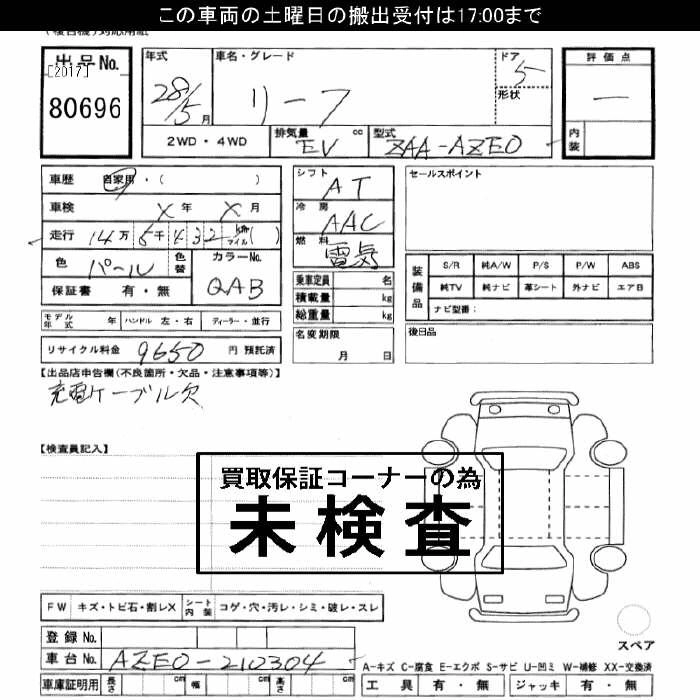 この車両の土曜日の搬出受付は17:00まで
出品No.
[2017]
80696
年式
28/5月
車名・グレード
リーフ
ドア
5
形状
評価点
—
内装
2WD・4WD
排気量 EV cc
型式 ZAA-AZE0
車歴 自家用・( )
車検 X年 X月
走行 14万 5千 432 km マイル ( )
色 パール
色替
カラーNo. QAB
保証書 有・無
モデル年式 年 ハンドル 左・右 ディーラー・並行
リサイクル料金 9650 円 預託済
シフト AT
冷房 AAC
燃料 電気
乗車定員 名
積載量 kg
総重量 kg
名変期限
月 日
セールスポイント
装備品
S/R 純A/W P/S P/W ABS
純TV 純ナビ 革シート 外ナビ エアB
ナビ型番:
後日品
【出品店申告欄(不良箇所・欠品・注意事項等)】
充電ケーブル欠
【検査員記入】
買取保証コーナーの為
未検査
FW キズ・トビ石・割レX シート内装 コゲ・穴・汚レ・シミ・破レ・スレ
登録No.
車台No. AZE0-210304
車庫証明用 長さ cm 幅 cm 高さ cm
スペア
A-キズ C-腐食 E-エクボ S-サビ U-凹ミ W-補修 XX-交換済
工具 有・無 ジャッキ 有・無